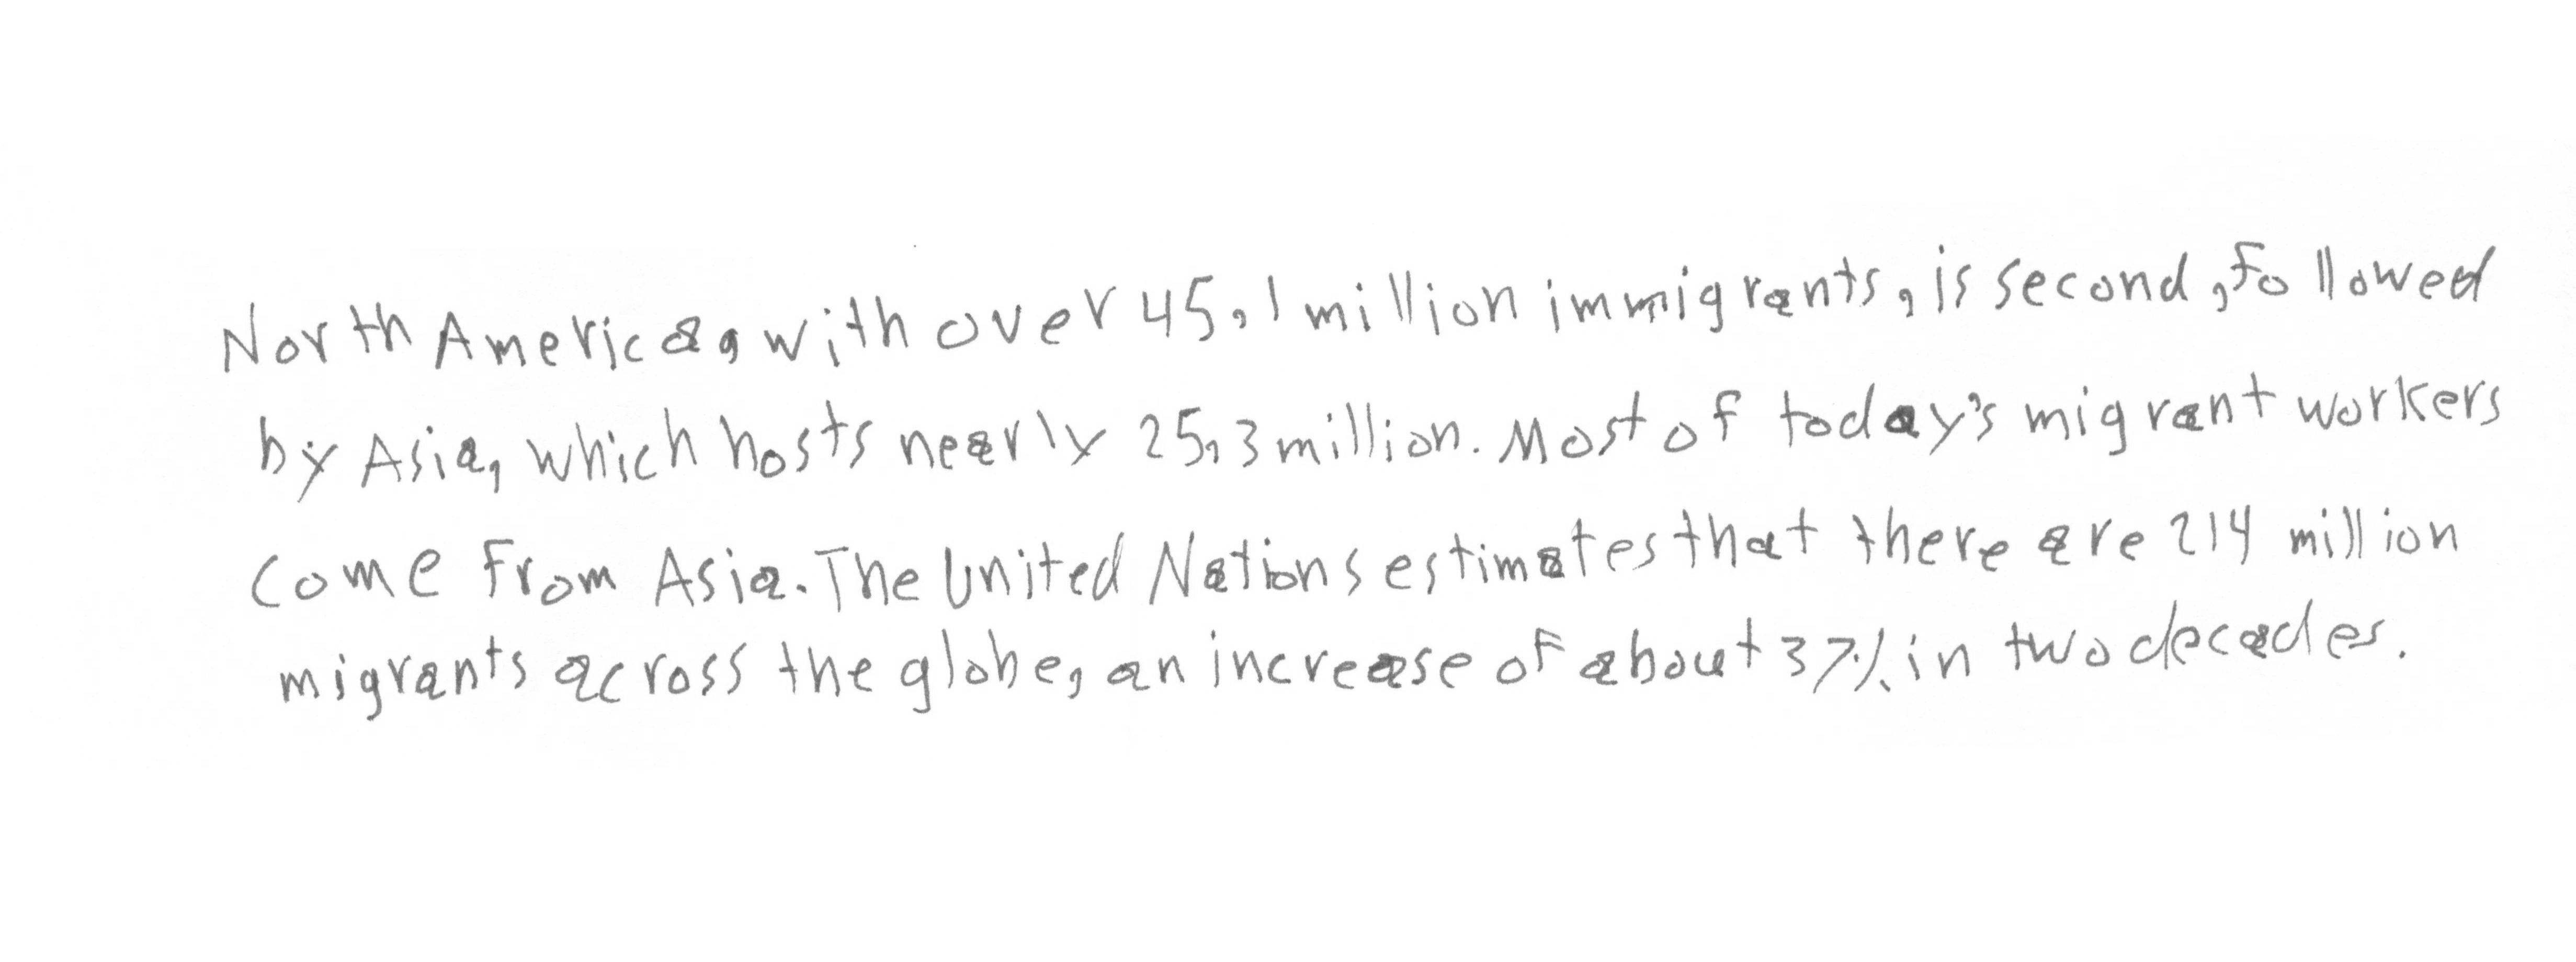 North America, with over 45,1 million immigrants, is second, followed
by Asia, which hosts nearly 25,3 million. Most of today's migrant workers
come from Asia. The United Nations estimates that there are 214 million
migrants across the globe, an increase of about 37% in two decades.